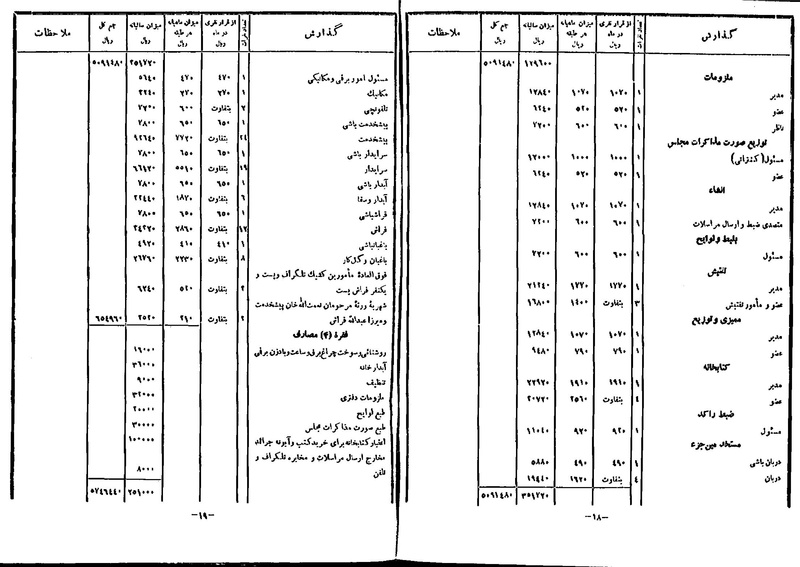 گذارش تعداد نفرات از قرار نفری در ماه ریال میزان ماهیانه هر طبقه ریال میزان سالیانه ریال جمع کل ریال ملاحظات
۱۲۹۶۰۰ ۵۰۹۱۴۸۰
ملزومات
مدیر ۱ ۱۰۷۰ ۱۰۷۰ ۱۲۸۴۰
عضو ۱ ۵۲۰ ۵۲۰ ۶۲۴۰
ناظر ۱ ۶۰۰ ۶۰۰ ۷۲۰۰
توزیع صورت مذاکرات مجلس
مسئول (کنتراتی) ۱ ۱۰۰۰ ۱۰۰۰ ۱۲۰۰۰
عضو ۱ ۵۲۰ ۵۲۰ ۶۲۴۰
انشاء
مدیر ۱ ۱۰۷۰ ۱۰۷۰ ۱۲۸۴۰
متصدی ضبط و ارسال مراسلات ۱ ۶۰۰ ۶۰۰ ۷۲۰۰
بلیط و لوایح
مسئول ۱ ۶۰۰ ۶۰۰ ۷۲۰۰
تفتیش
مدیر ۱ ۱۷۷۰ ۱۷۷۰ ۲۱۲۴۰
عضو و مأمور تفتیش ۳ بتفاوت ۱۴۰۰ ۱۶۸۰۰
ممیزی و توزیع
مدیر ۱ ۱۰۷۰ ۱۰۷۰ ۱۲۸۴۰
عضو ۱ ۷۹۰ ۷۹۰ ۹۴۸۰
کتابخانه
مدیر ۱ ۱۹۱۰ ۱۹۱۰ ۲۲۹۲۰
عضو ۴ بتفاوت ۲۵۶۰ ۳۰۷۲۰
ضبط راکد
مسئول ۱ ۹۲۰ ۹۲۰ ۱۱۰۴۰
مستخدمین جزء
دربان باشی ۱ ۴۹۰ ۴۹۰ ۵۸۸۰
دربان ۴ بتفاوت ۱۶۲۰ ۱۹۴۴۰
۳۵۱۷۲۰ ۵۰۹۱۴۸۰
—۱۸—
گذارش تعداد نفرات از قرار نفری در ماه ریال میزان ماهیانه هر طبقه ریال میزان سالیانه ریال جمع کل ریال ملاحظات
۳۵۱۷۲۰ ۵۰۹۱۴۸۰
مسئول امور برقی و مکانیکی ۱ ۴۷۰ ۴۷۰ ۵۶۴۰
مکانیک ۱ ۲۷۰ ۲۷۰ ۳۲۴۰
تلفونچی ۲ بتفاوت ۶۰۰ ۷۲۰۰
پیشخدمت باشی ۱ ۶۵۰ ۶۵۰ ۷۸۰۰
پیشخدمت ۲۴ بتفاوت ۷۷۲۰ ۹۲۶۴۰
سرایدار باشی ۱ ۶۵۰ ۶۵۰ ۷۸۰۰
سرایدار ۱۹ بتفاوت ۵۵۱۰ ۶۶۱۲۰
آبدار باشی ۱ ۶۵۰ ۶۵۰ ۷۸۰۰
آبدار و سقا ۶ بتفاوت ۱۸۷۰ ۲۲۴۴۰
فراشباشی ۱ ۶۵۰ ۶۵۰ ۷۸۰۰
فراش ۱۲ بتفاوت ۲۸۶۰ ۳۴۳۲۰
باغبانباشی ۱ ۴۱۰ ۴۱۰ ۴۹۲۰
باغبان و گل کار ۸ بتفاوت ۲۲۳۰ ۲۶۷۶۰
فوق العادۀ مأمورین کشیک تلگراف و پست و
یکنفر فراش پست ۲ بتفاوت ۵۲۰ ۶۲۴۰
شهریۀ ورثۀ مرحومان نعمت‌الله خان پیشخدمت
و میرزا عبدالله فراش ۲ بتفاوت ۲۱۰ ۲۵۲۰ ۶۵۴۹۶۰
فقرۀ (۴) مصارف
روشنائی و سوخت چراغ برق و ساعت و بادزن برقی ۱۶۰۰۰
آبدارخانه ۳۶۰۰۰
تنظیف ۹۰۰۰
ملزومات دفتری ۳۲۰۰۰
طبع لوایح ۲۰۰۰۰
طبع صورت مذاکرات مجلس ۳۰۰۰۰
اعتبار کتابخانه برای خرید کتب و آبونه جرائد ۱۰۰۰۰۰
مخارج ارسال مراسلات و مخابره تلگراف و
تلفن ۸۰۰۰
۲۵۱۰۰۰ ۵۷۴۶۴۴۰
—۱۹—